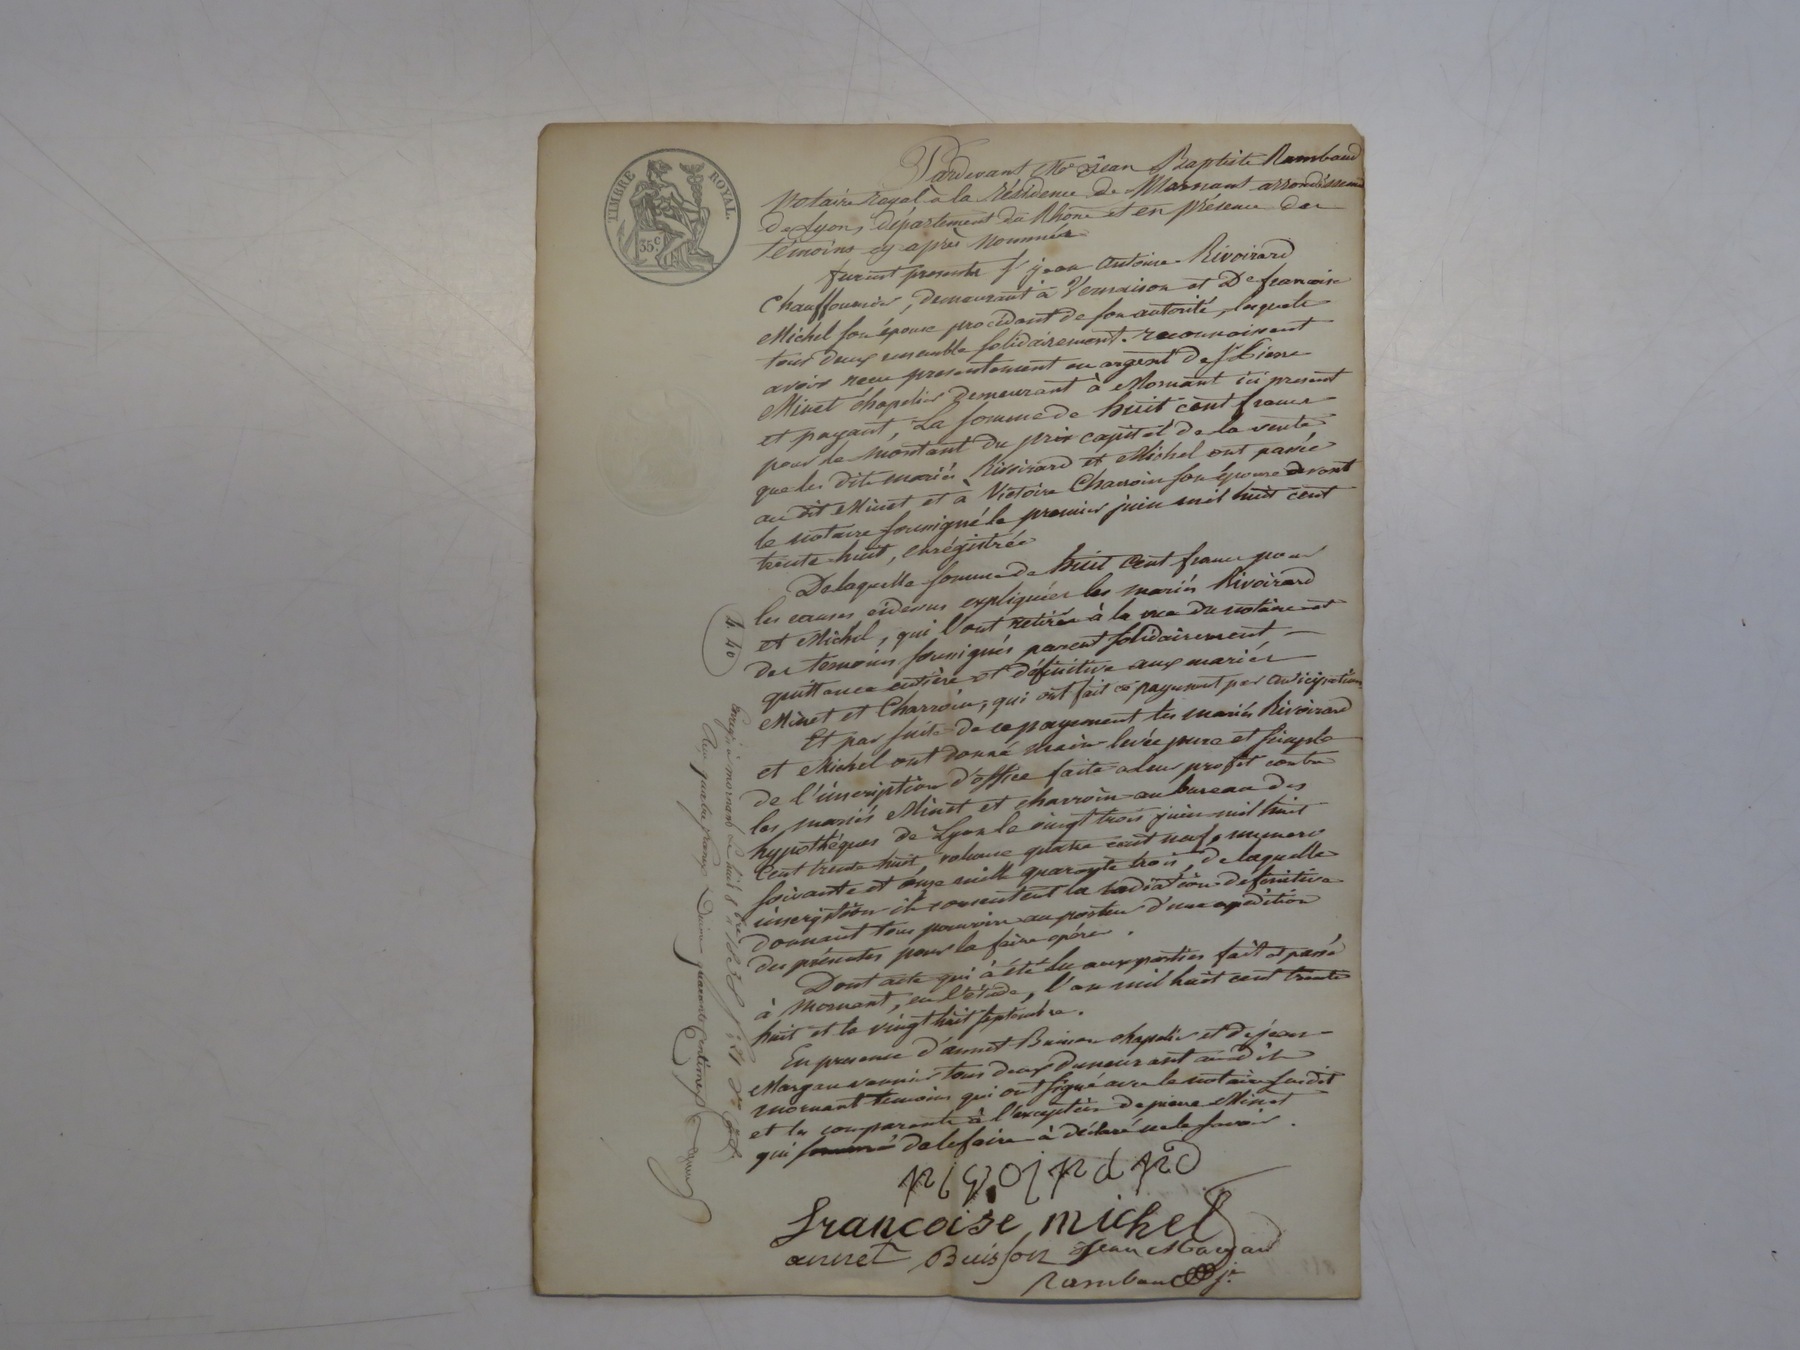 TIMBRE ROYAL.
35 c.
Pardevant Me Jean Baptiste Rambaud
Notaire royal à la résidence de Mornant arrondissement
De Lyon, département du Rhône et en présence des
témoins cy après nommés
furent presents Sr jean Antoine Rivoirard
Chauffournier, demeurant à Vernaison et De françoise
Michel son épouse procédant de son autorité, lesquels
tous deux ensemble solidairement reconnoissent
avoir reçu presentement en argent de Sr Pierre
Minet chapelier demeurant à Mornant ici present
et payant, La somme de huit cent francs
pour le montant du prix capital de la vente
que les dits mariés Rivoirard et Michel ont passée
au dit Minet et à Victoire Charroin son épouse devant
le notaire soussigné le premier juin mil huit cent
trente huit, enrégistrée
De laquelle somme de huit cent francs pour
les causes cidessus expliquées les mariés Rivoirard
et Michel, qui l'ont retirée à la vue du notaire et
des temoins soussignés passent solidairement
quittance entière et définitive aux mariés
Minet et Charroin, qui ont fait ce payement par anticipation
Et par suite de ce payement les mariés Rivoirard
et Michel ont donné main levée pure et simple
de l'inscription d'office faite a leur profit contre
les mariés Minet et charroin au bureau des
hypothèques de Lyon le vingt trois juin mil huit
Cent trente huit volume quatre cent neuf, numero
soixante et onze mille quarante trois, de laquelle
inscription ils consentent la radiation definitive
Donnant tous pouvoirs au porteur d'une expédition
des présentes pour la faire opérer.
Dont acte qui à été lu aux parties fait et passé
à Mornant, en l'étude, l'an mil huit cent trente
huit et le vingt huit septembre.
En presence d'annet Buisson chapelier et de jean
Margau tous deux demeurant audit
mornant temoins qui ont signé avec le notaire susdit
et les comparants à l'exception de pierre Minet
qui sommé de le faire à déclaré ne le savoir.
Rivoirard
francoise michel
annet Buisson Jean Margau
Rambaud je
4. 40
Enregé à mornant Le huit 8bre 1838
Reçu quatre francs Dixieme quarante centimes